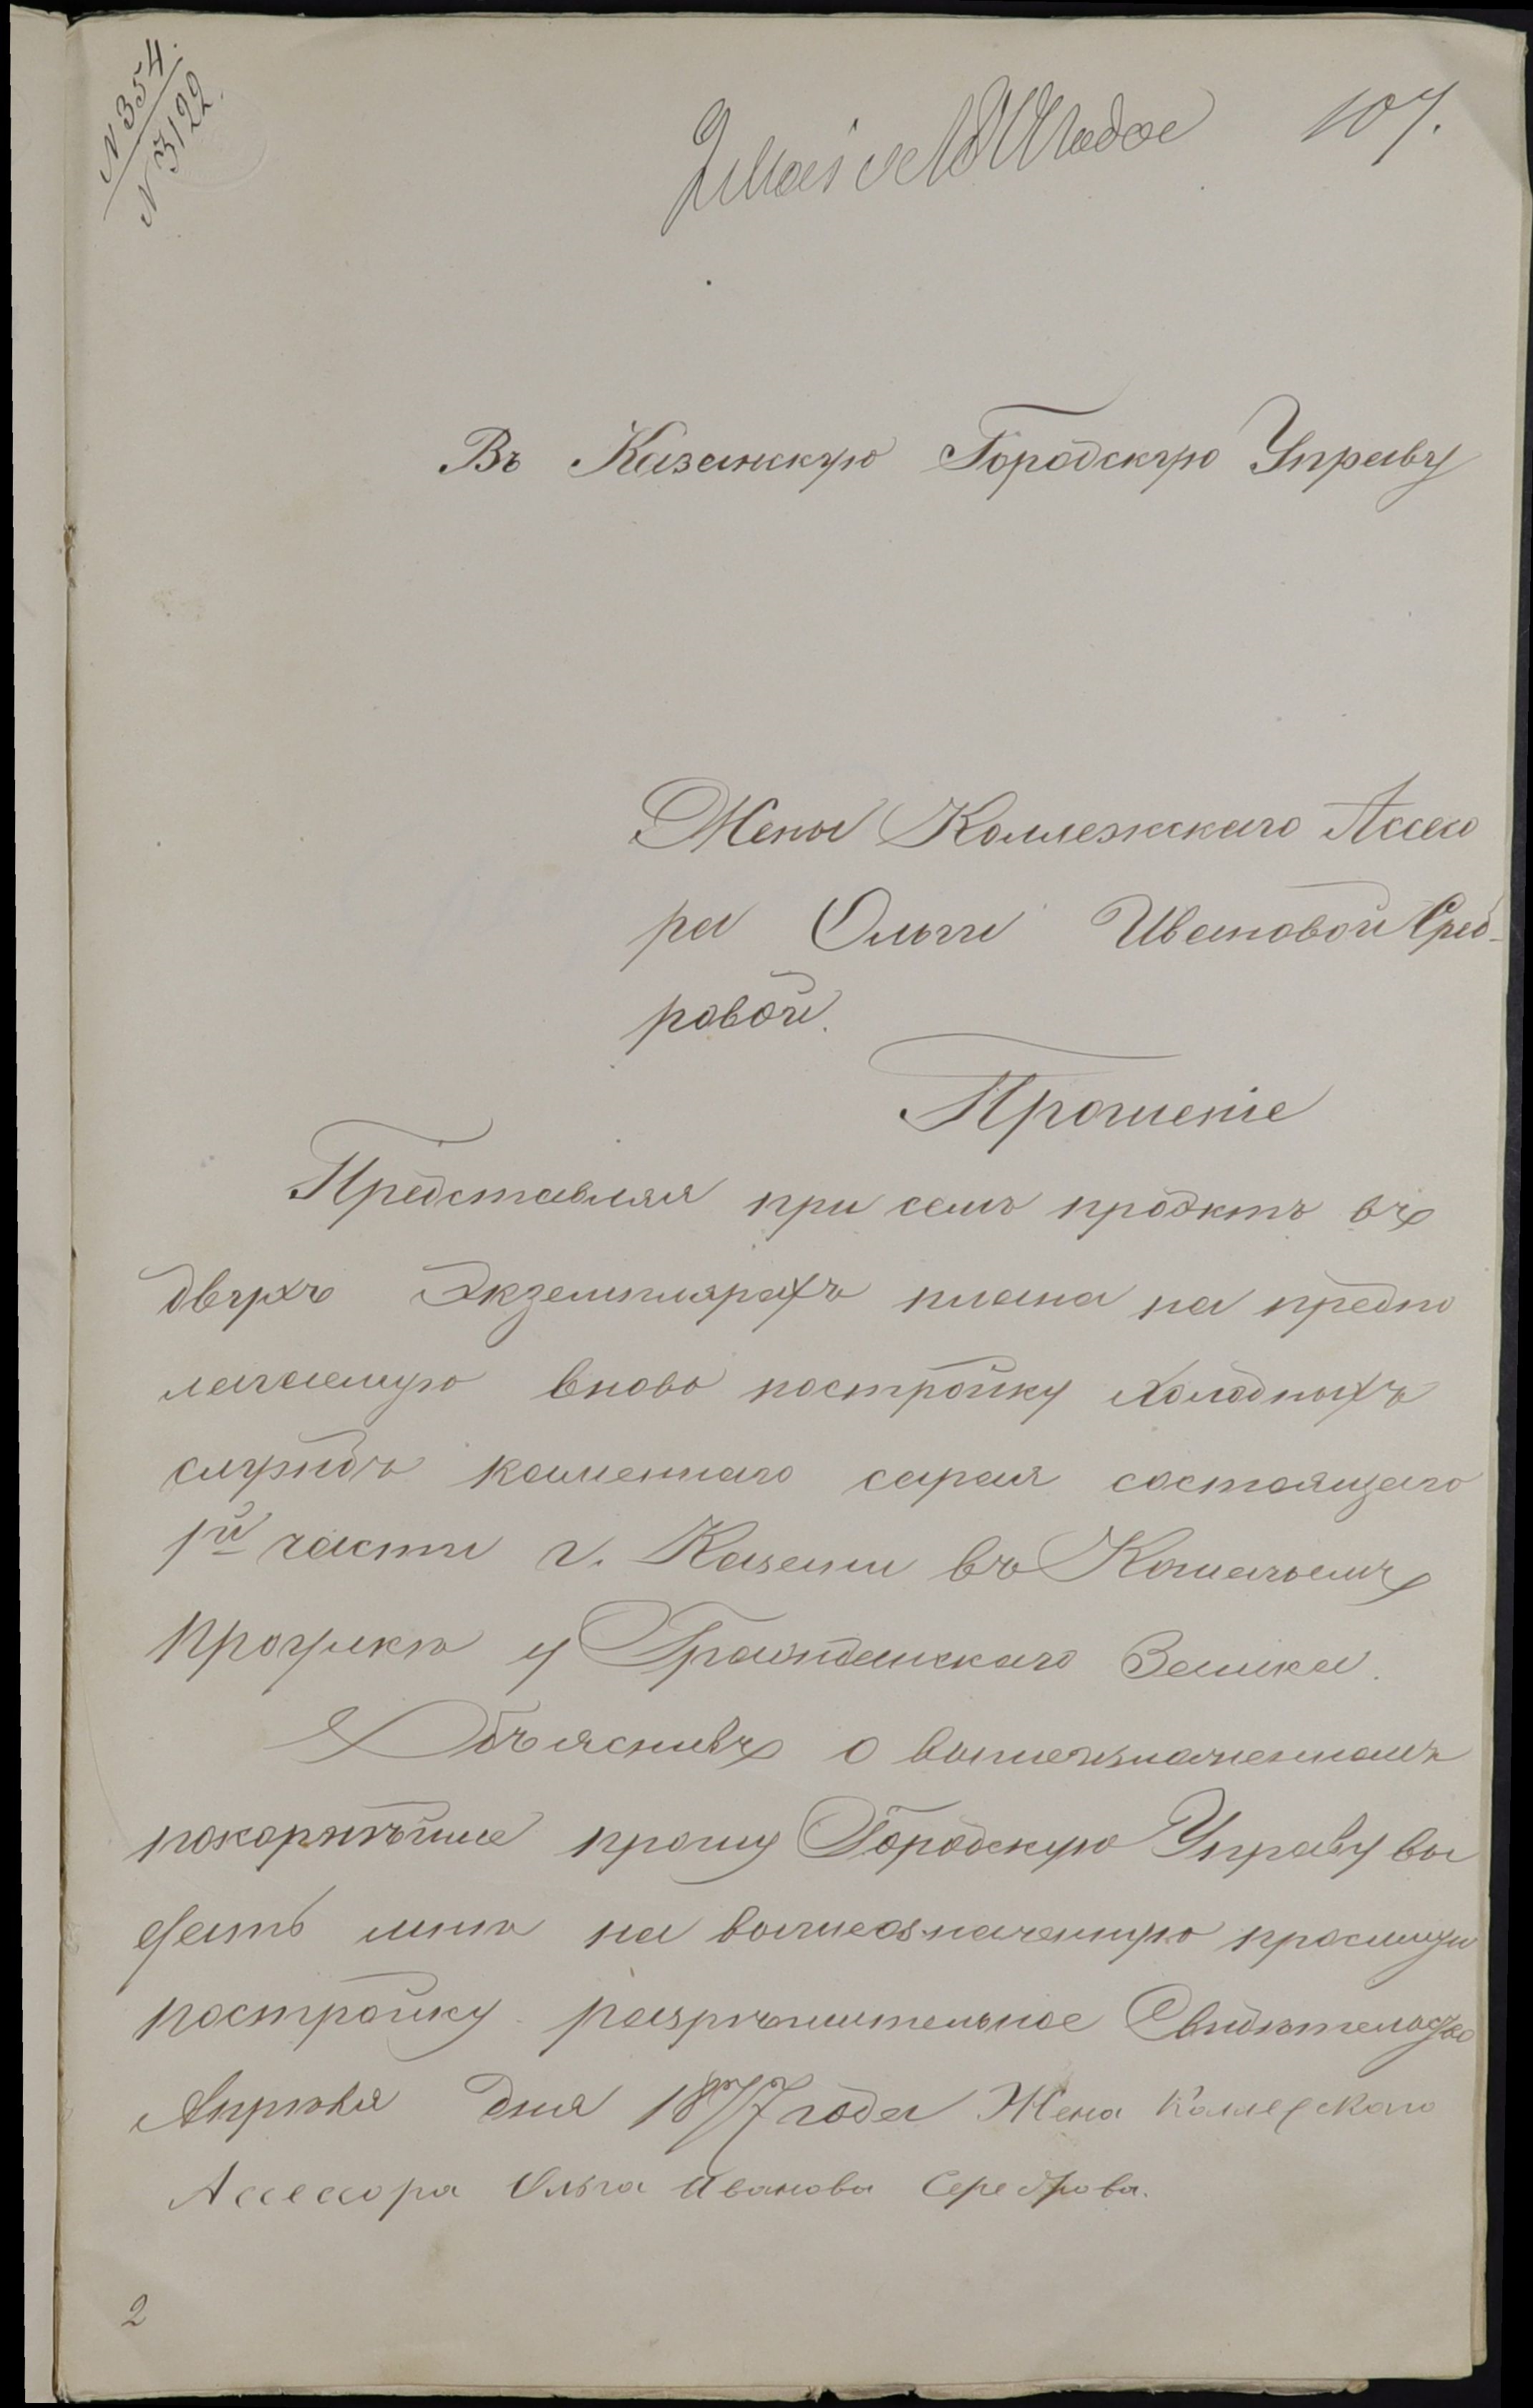 N 354.
N 3122.
107.
Въ Казанскую Городскую Управу
Жены Коллежскаго Ассесо
ра Ольги Ивановой Среб-
ровой.
Прошеніе
Представляя при семъ проэктъ въ
двухъ Экземплярахъ плана на предпо
логаемую вновь постройку холодныхъ
службъ каменнаго сарая состоящаго
1й части г. Казани въ Кошачьемъ
проулкѣ у Гражданскаго Замка.
Объяснивъ о вышеозначенномъ
покорнѣйше прошу Городскую Управу вы
дать мнѣ на вышеозначенную просимую
постройку разрѣшительное Свидѣтельство
Апрѣля дня 1877 года Жена Коллежскаго
Ассессора Ольга Иванова Сереброва.
2